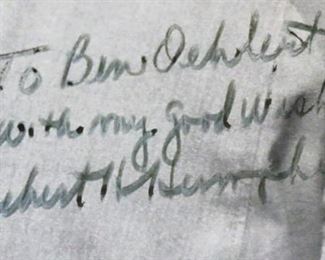 To Ben Oehlert
with my good wish
ubert H Humphr